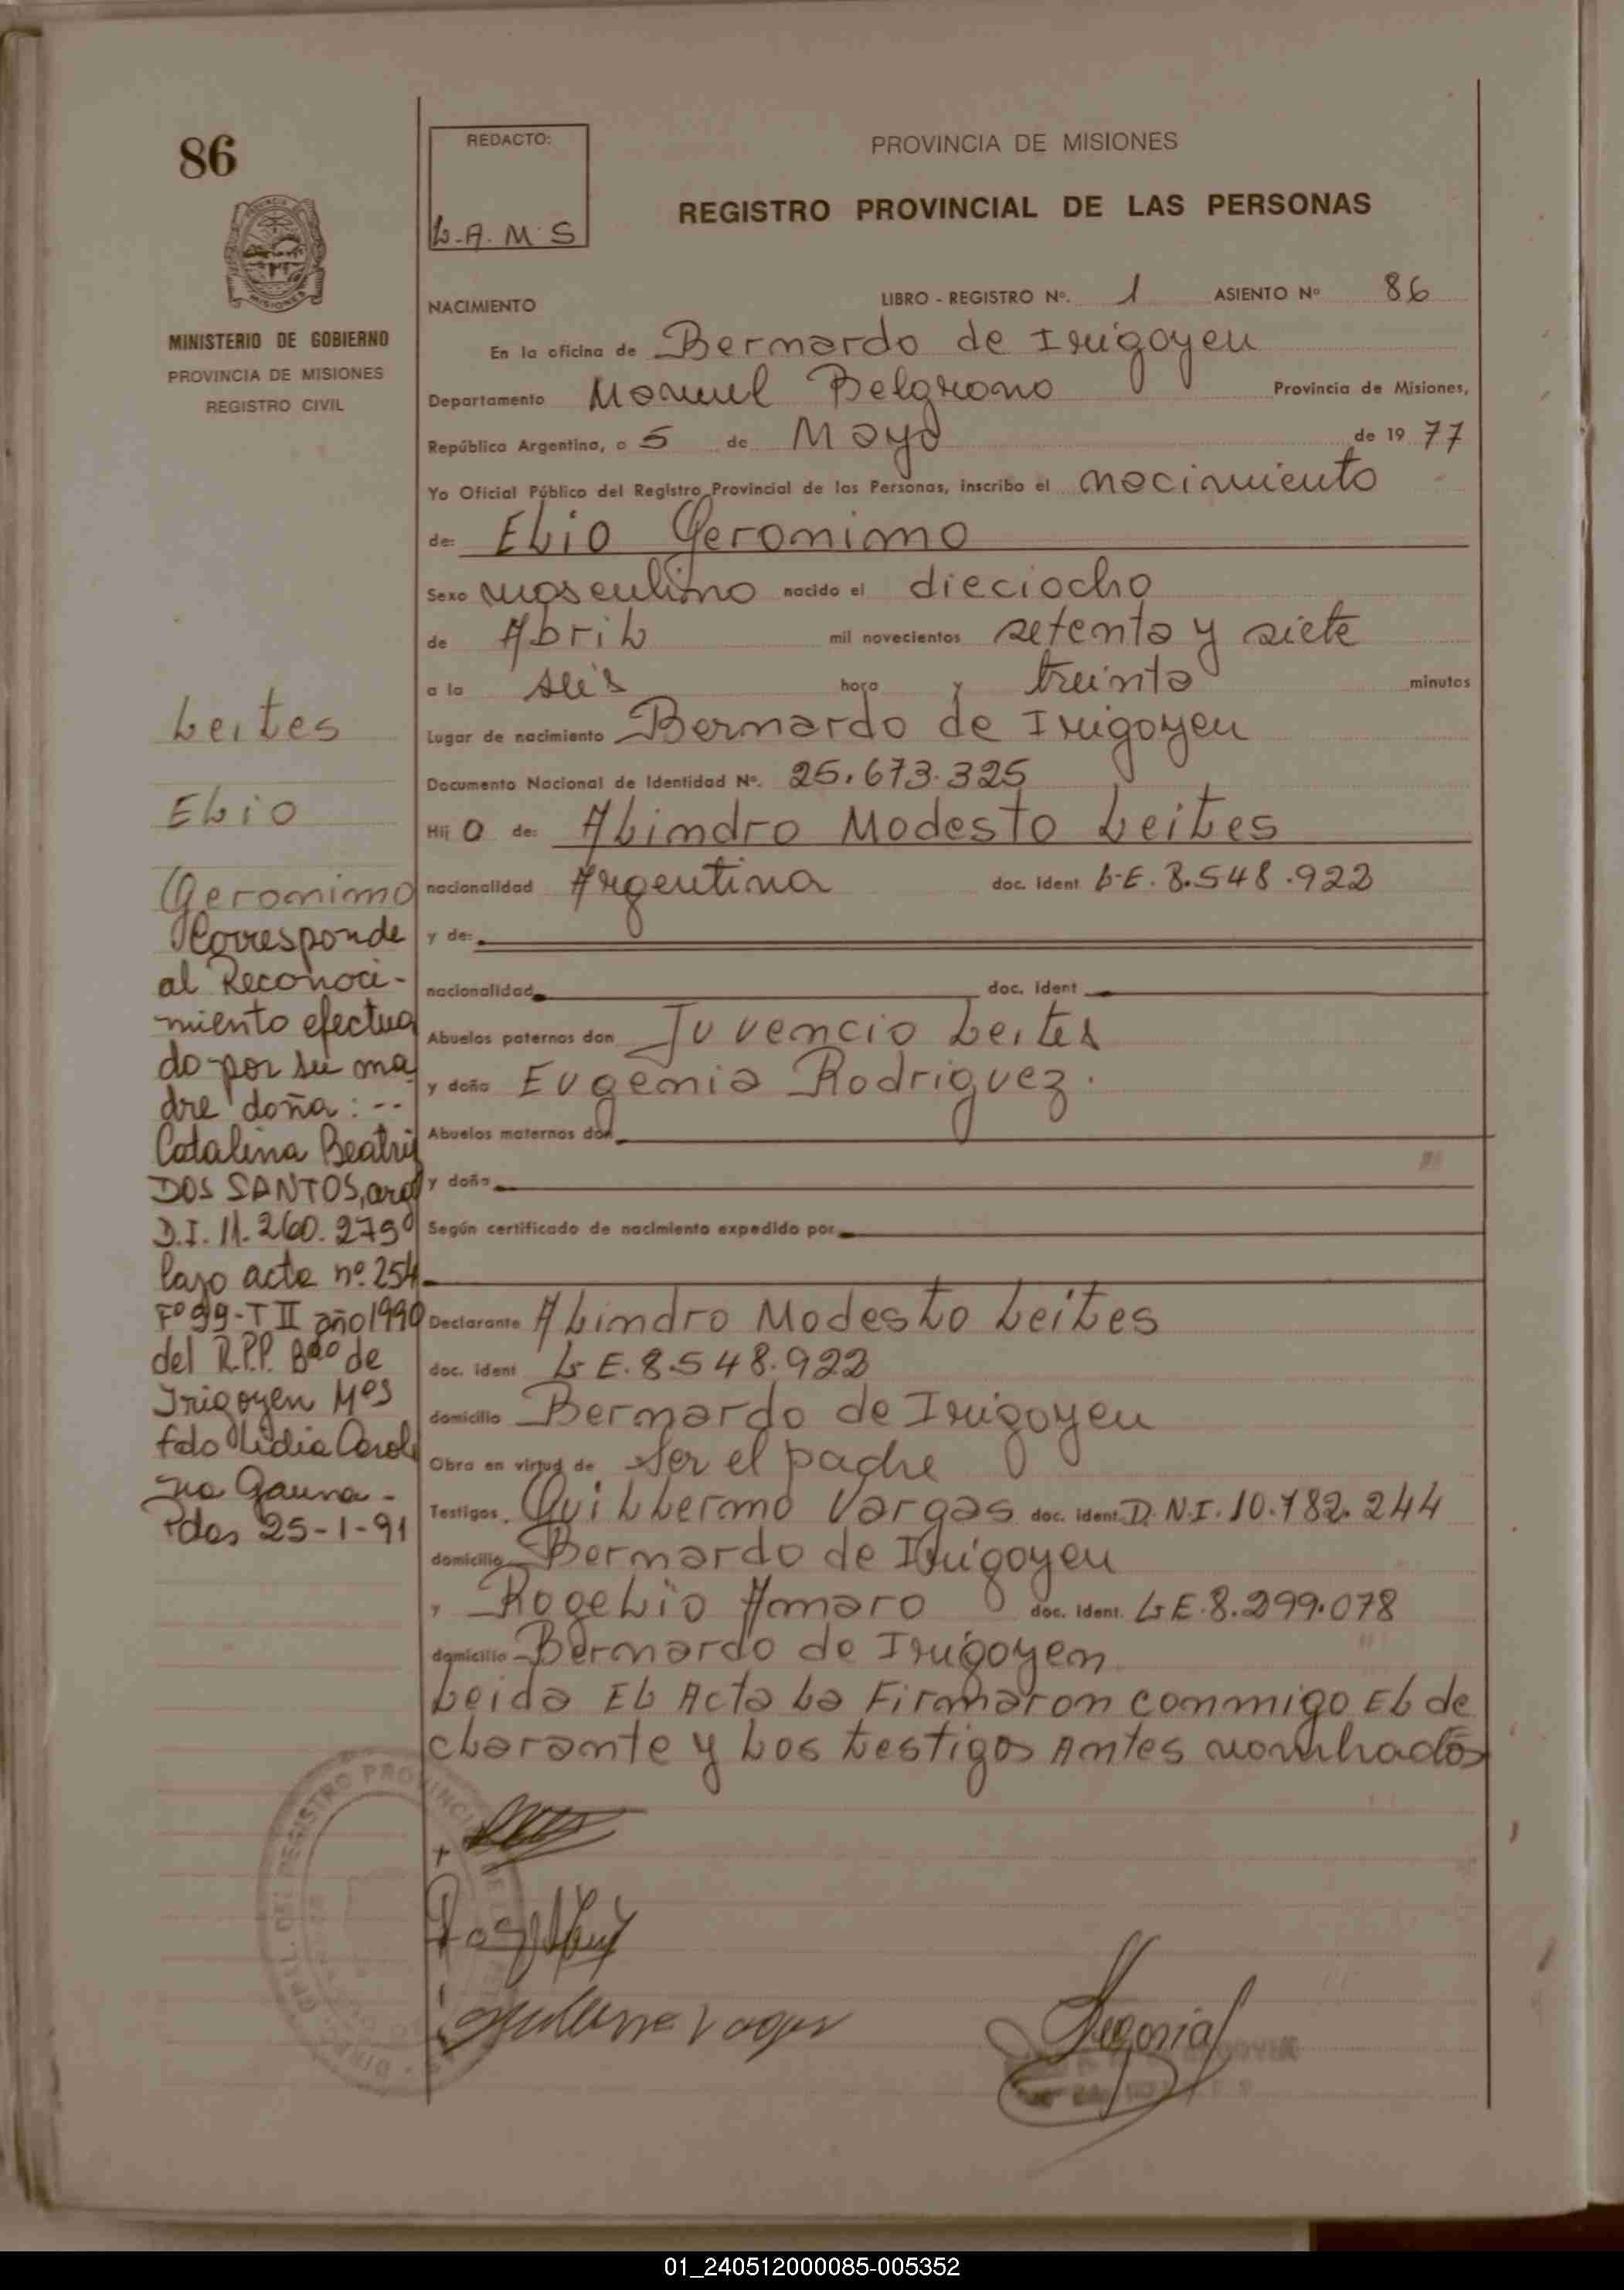 86
REDACTO:
L.A.M.S
PROVINCIA DE MISIONES
REGISTRO PROVINCIAL DE LAS PERSONAS
MINISTERIO DE GOBIERNO
PROVINCIA DE MISIONES
REGISTRO CIVIL
NACIMIENTO LIBRO - REGISTRO Nº. 1 ASIENTO Nº 86
En la oficina de Bernardo de Irigoyen
Departamento Manuel Belgrano Provincia de Misiones,
República Argentina, a 5 de Mayo de 19 77
Yo Oficial Público del Registro Provincial de las Personas, inscribo el nacimiento
de: Elio Geronimo
Sexo masculino nacido el dieciocho
de Abril mil novecientos setenta y siete
a la seis hora y treinta minutos
Lugar de nacimiento Bernardo de Irigoyen
Documento Nacional de Identidad Nº. 25.673.325
Hij o de: Alindro Modesto Leites
nacionalidad Argentina doc. ident L.E. 8.548.922
y de:
nacionalidad doc. ident
Abuelos paternos don Juvencio Leites
y doña Eugenia Rodriguez.
Abuelos maternos don
y doña
Según certificado de nacimiento expedido por
Declarante Alindro Modesto Leites
doc. ident L.E. 8.548.922
domicilio Bernardo de Irigoyen
Obra en virtud de Ser el padre
Testigos. Guillermo Vargas doc. ident. D.N.I. 10.782.244
domicilio Bernardo de Irigoyen
y Rogelio Amaro doc. ident. L.E. 8.299.078
domicilio Bernardo de Irigoyen
Leida El Acta La Firmaron conmigo El de
clarante y Los testigos Antes nombrados
Leites
Elio
Geronimo
Corresponde
al Reconoci-
miento efectua
do por su ma
dre doña: --
Catalina Beatriz
DOS SANTOS, arg
D.I. 11.260.279
bajo acta nº 254
Fº 99-T II año 1990
del R.P.P. Bdo de
Irigoyen Mes
fdo Lidia Caroli
na Gauna -
Pdas 25-1-91
01_240512000085-005352